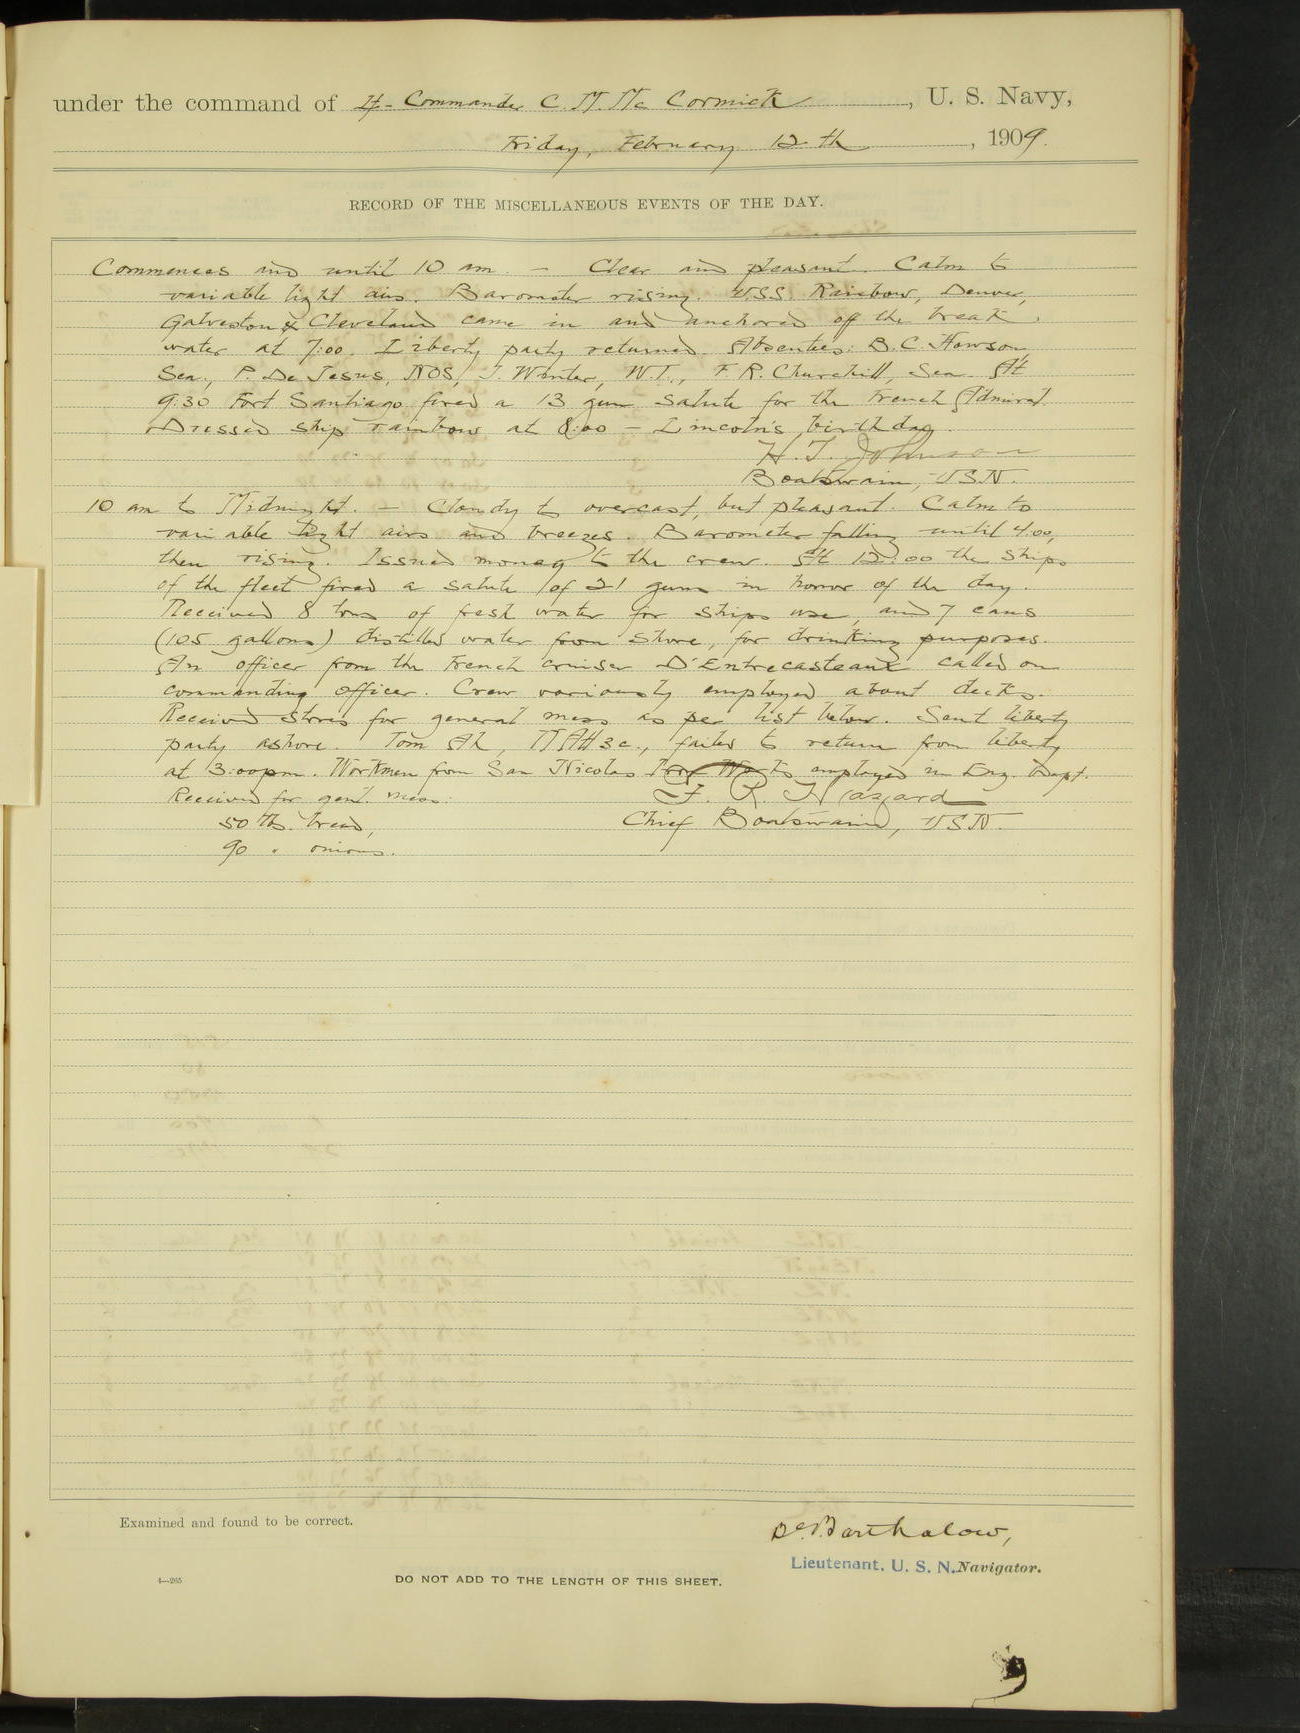 under the command of Lt-Commander C. M. McCormick, U. S. Navy,
Friday, February 12th, 1909.
RECORD OF THE MISCELLANEOUS EVENTS OF THE DAY.
Commences and until 10 am. - Clear and pleasant. Calm to
variable light airs. Barometer rising. U.S.S. Rainbow, Denver,
Galveston & Cleveland came in and anchored off the break
water at 7:00. Liberty party returned. Absentees: B.C. Howson
Sea., P. De Jesus, NOS, J. Winter, W.T., F. R. Churchill, Sea. At
9:30 Fort Santiago fired a 13 gun salute for the French Admiral.
Dressed ship rainbow at 8:00 - Lincoln's birthday.
H. T. Johnson
Boatswain, USN.
10 am to Midnight. - Cloudy to overcast, but pleasant. Calm to
variable light airs and breezes. Barometer falling until 4:00,
then rising. Issued money to the crew. At 12:00 the ships
of the fleet fired a salute of 21 guns in honor of the day.
Received 8 tons of fresh water for ships use, and 7 cans
(105 gallons) distilled water from shore, for drinking purposes.
An officer from the French cruiser D'Entrecasteaux called on
commanding officer. Crew variously employed about decks.
Received stores for general mess as per list below. Sent liberty
party ashore. Tom Ah, MAtt3c., failed to return from liberty
at 3:00pm. Workmen from San Nicolas Iron Works employed in Eng. Dept.
Received for genl. mess:
F. R. Hazard
50 lbs. bread,
Chief Boatswain, USN.
90 " onions.
Examined and found to be correct.
Barthalow,
Lieutenant, U. S. N. Navigator.
4—265
DO NOT ADD TO THE LENGTH OF THIS SHEET.